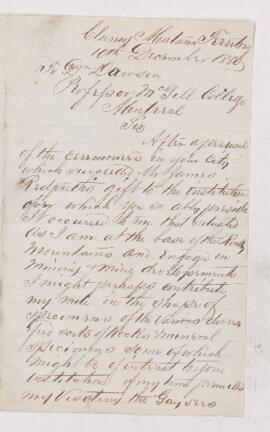 Clancy Montana Territory
10th December 1880
To Dr Dawson
Professor McGill College
Montreal
Sir
After a perusal
of the ceremonies in your City
which succeeded Mr James
Redpath's gift to the institution
over which you so ably preside
It occurred to me that situated
as I am at the base of the Rocky
Mountains and Engage in
Mining & mine developments
I might perhaps contribute
my mite in the shape of
specimens of the various
sorts of Rocks & mineral
specimens some of which
might be of interest before
institution if my time permits
my visiting the Gaysers